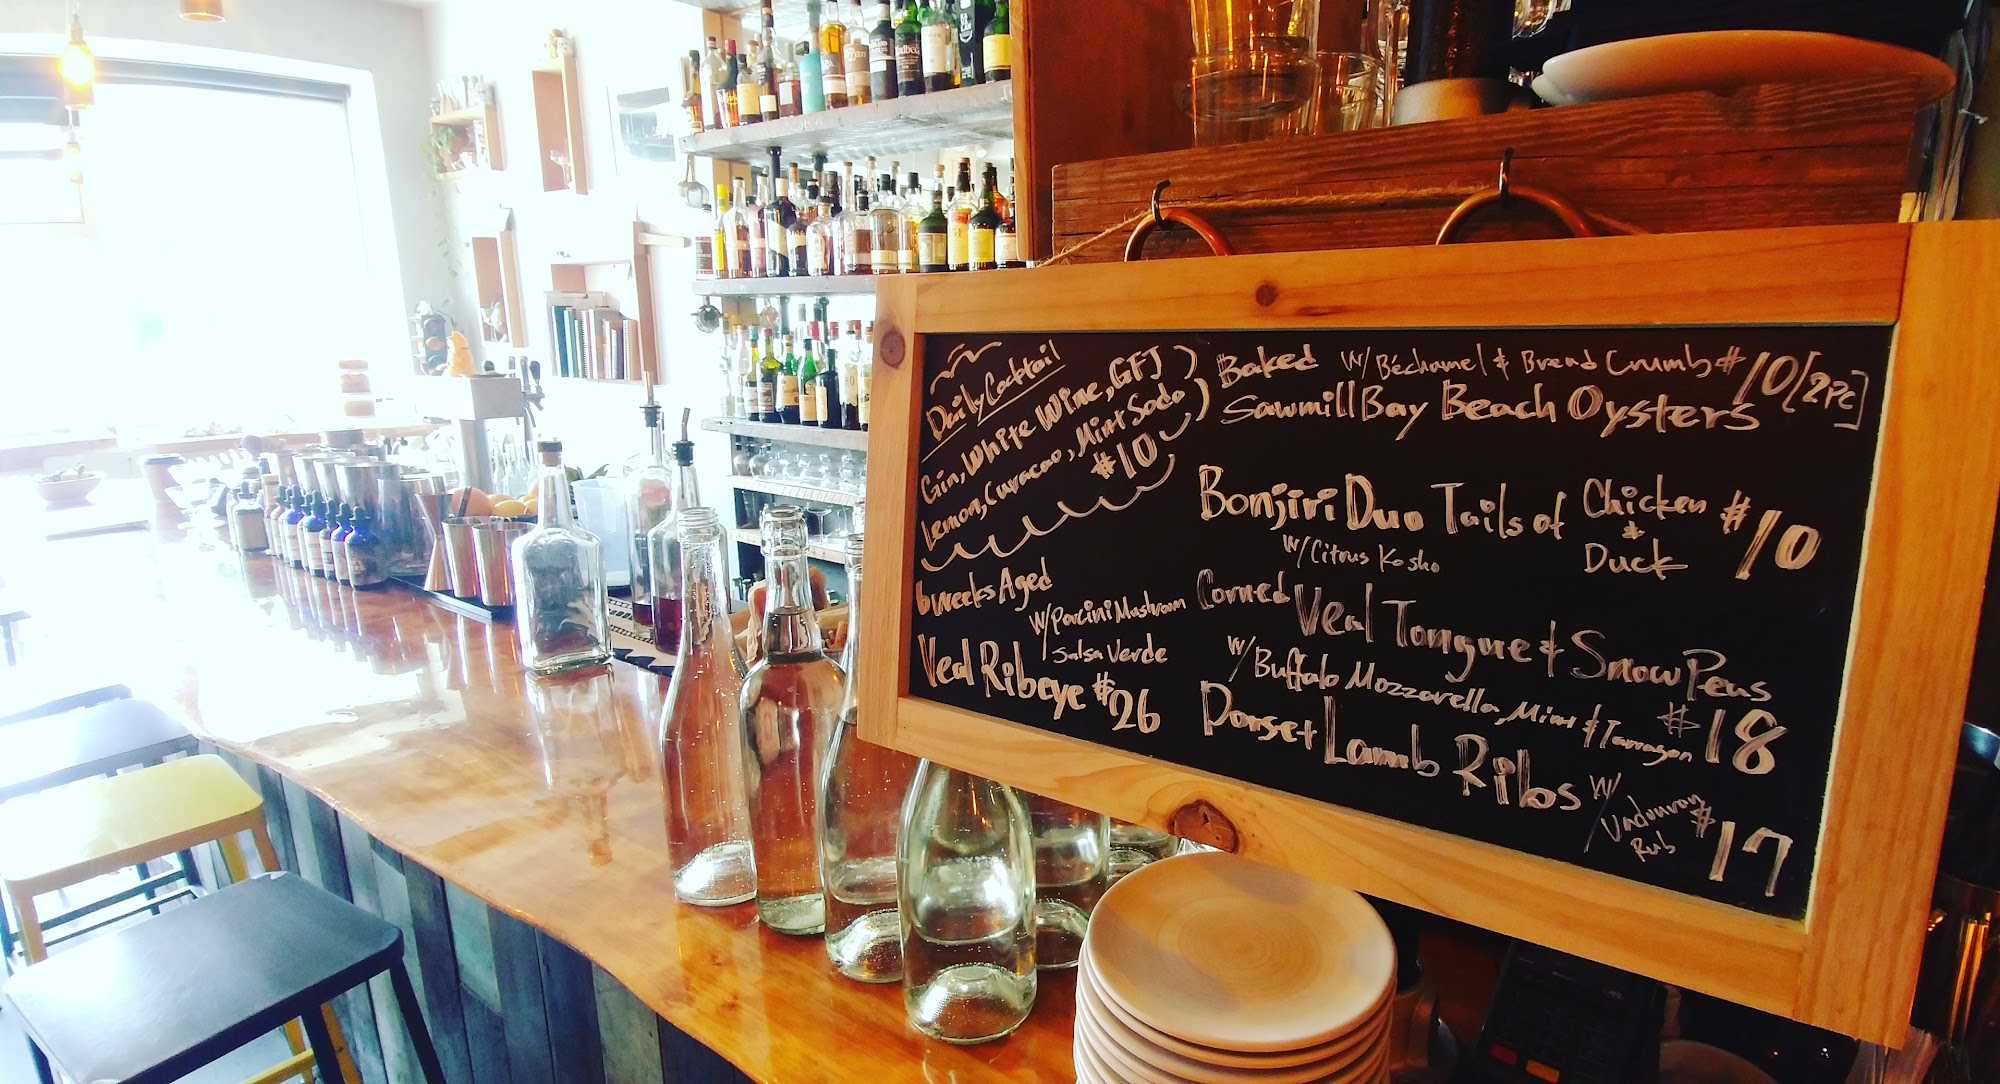 Daily Cocktail
Gin, White Wine, GFJ
Lemon, Curacao, Mint Soda
#10
6 weeks Aged
w/ Porcini Mushroom
Salsa Verde
Veal Ribeye #26
Baked w/ Béchamel & Bread Crumb #10 [2pc]
Sawmill Bay Beach Oysters
Bonjiri Duo Tails of Chicken & Duck #10
w/ Citrus Kosho
Corned Veal Tongue & Snow Peas
w/ Buffalo Mozzarella, Mint & Tarragon #18
Dorset Lamb Ribs w/
Rub #17